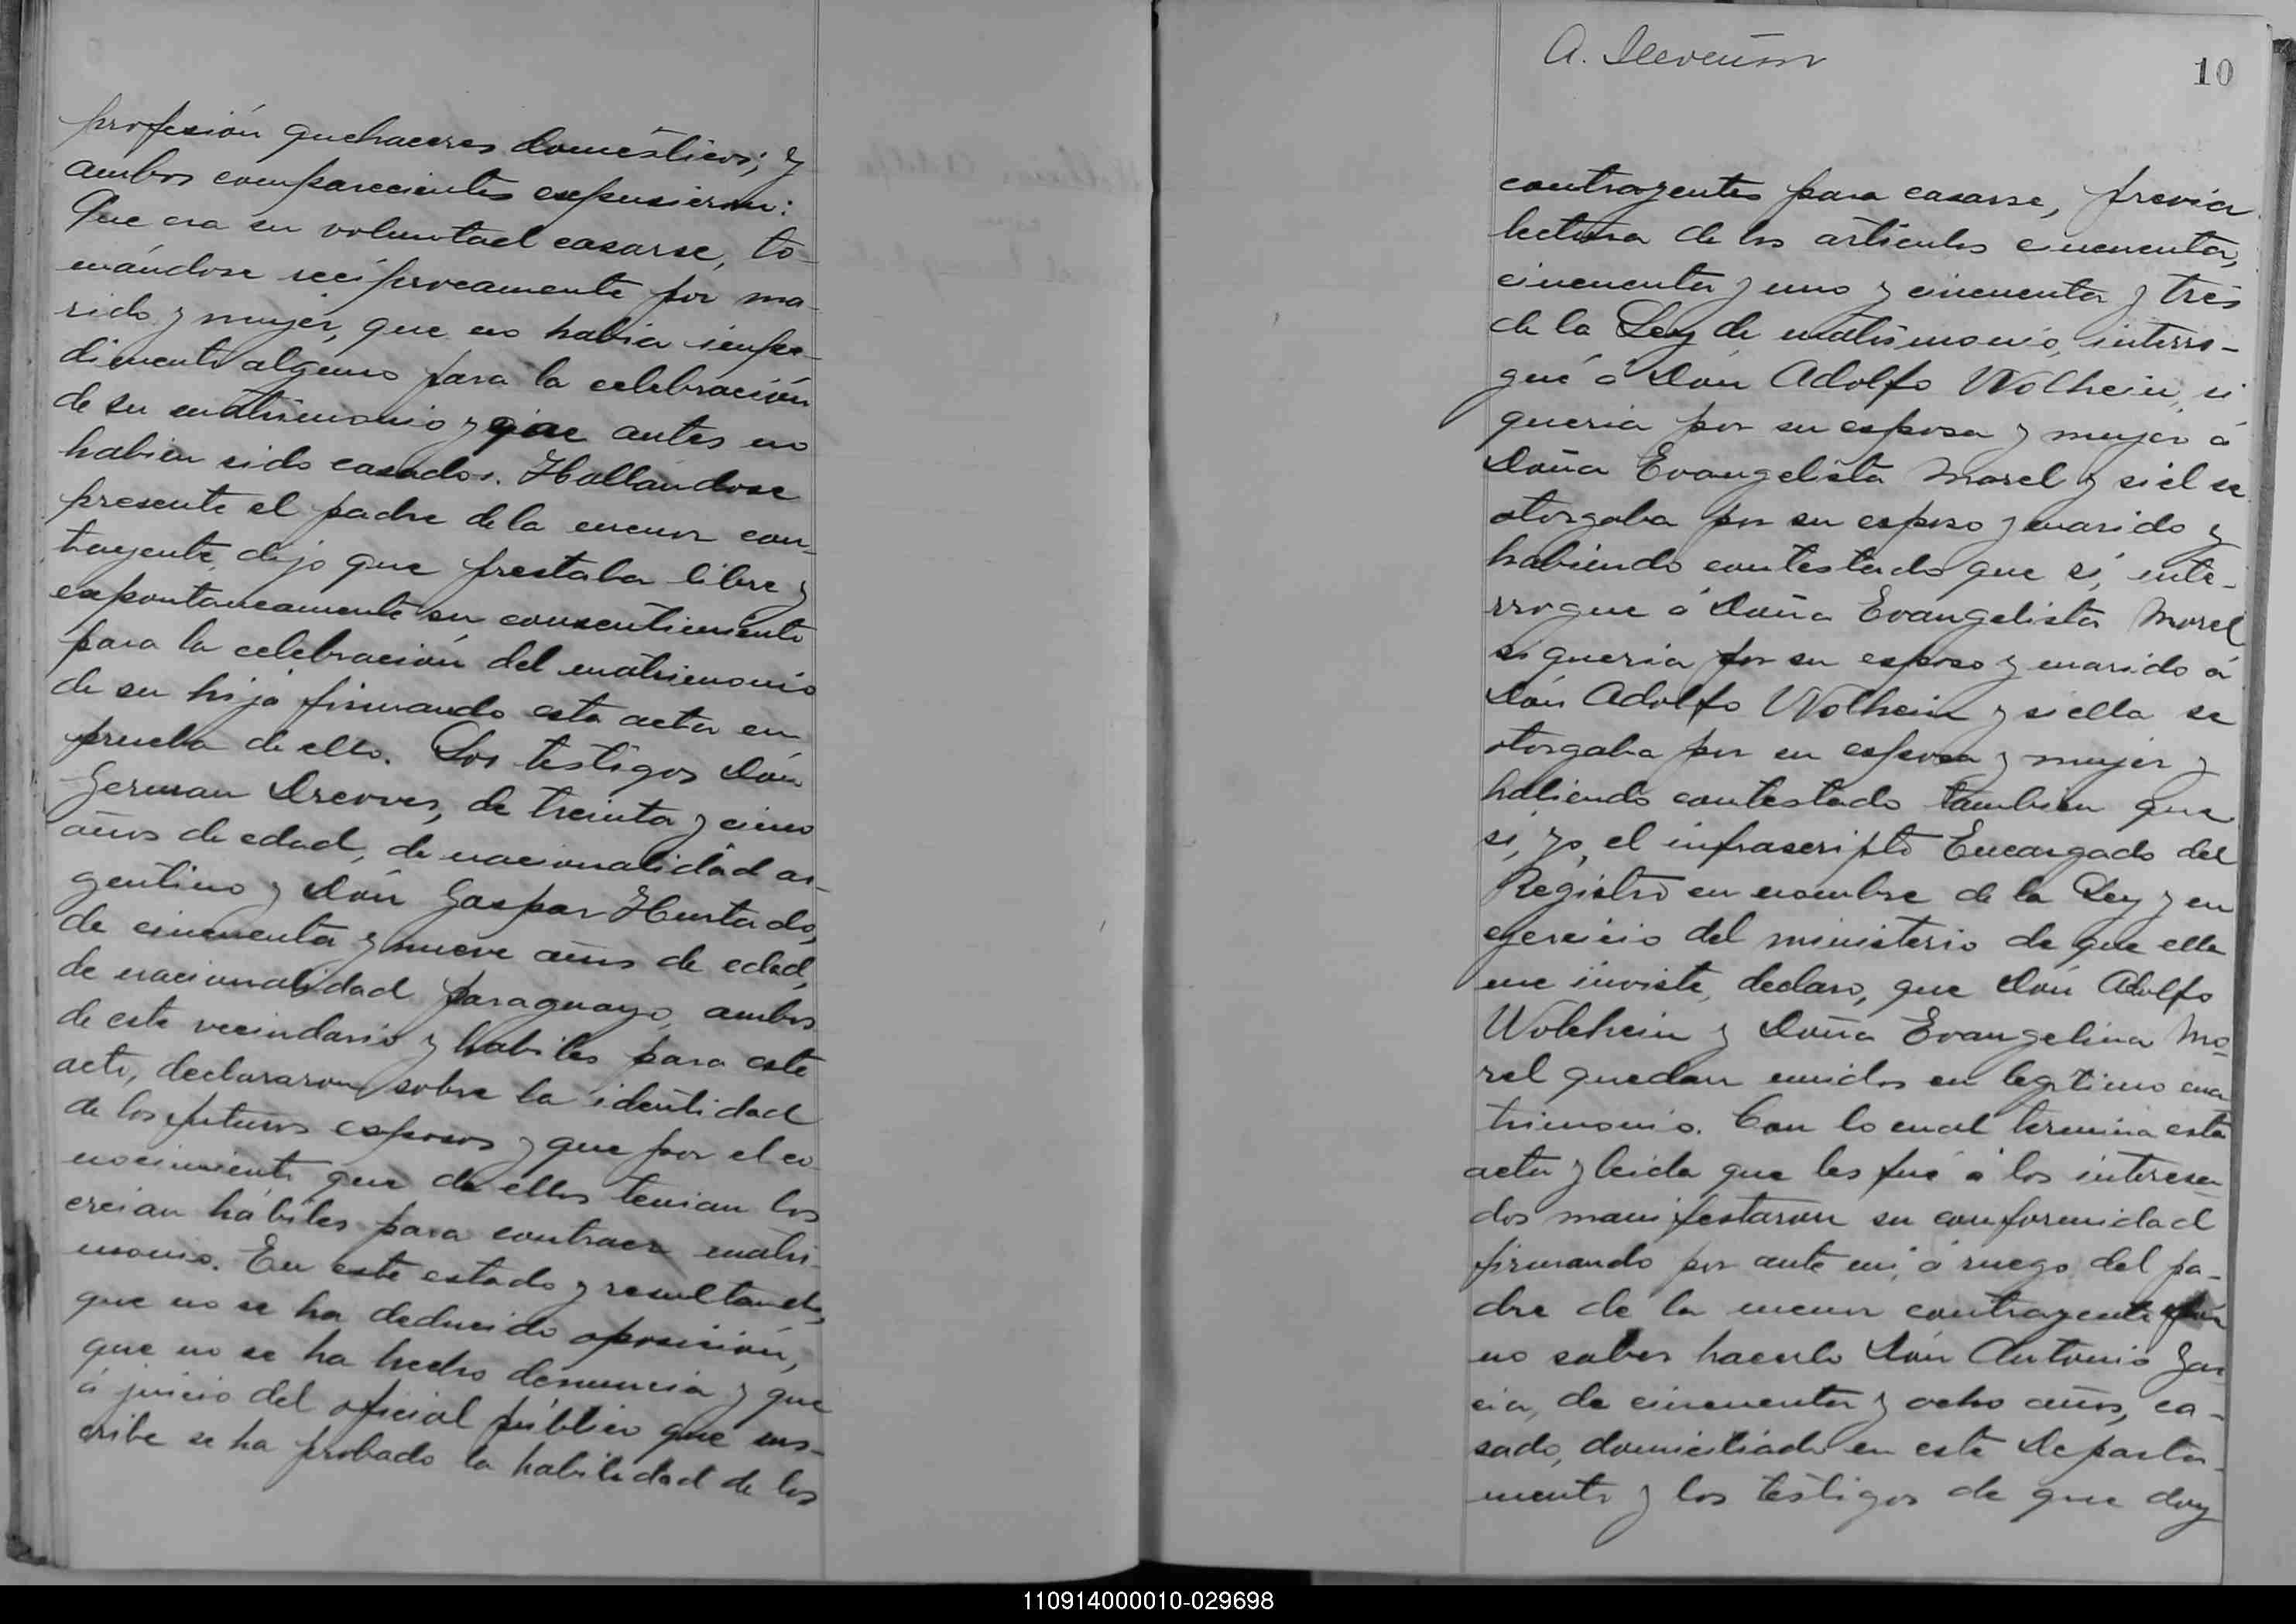 profesión quehaceres domésticos; y
ambos comparecientes expusieron:
Que era su voluntad casarse, to-
mándose recíprocamente por ma-
rido y mujer, que no habia impe-
dimento alguno para la celebración
de su matrimonio y que antes no
habian sido casados. Hallándose
presente el padre de la menor con-
trayente, dijo que prestaba libre y
expontaneamente su consentimiento
para la celebración del matrimonio
de su hija firmando esta acta en
prueba de ello. Los testigos Dón
German Drewes, de treinta y cinco
años de edad, de nacionalidad ar-
gentino y Dón Gaspar Hurtado,
de cincuenta y nueve años de edad,
de nacionalidad paraguayo, ambos
de este vecindario y habiles para este
acto, declararon sobre la identidad
de los futuros esposos y que por el co-
nocimiento que de ellos tenian los
creian hábiles para contraer matri-
monio. En este estado y resultando,
que no se ha deducido oposición,
que no se ha hecho denuncia y que
á juicio del oficial público que sus-
cribe se ha probado la habilidad de los
A.
10
contrayentes para casarse, previa
lectura de los artículos cincuenta,
cincuenta y uno y cincuenta y tres
de la Ley de matrimonio, interro-
gué á Dón Adolfo Wolhein, si
queria por su esposa y mujer á
Doña Evangelista Morel y si él se
otorgaba por su esposo y marido y
habiendo contestado que sí, inte-
rrogue á Doña Evangelista Morel
si queria por su esposo y marido á
Dón Adolfo Wolhein y si ella se
otorgaba por su esposa y mujer y
habiendo contestado tambien que
sí, yo, el infrascripto Encargado del
Registro en nombre de la Ley y en
ejercicio del ministerio de que ella
me inviste, declaro, que Dón Adolfo
Wolehein y Doña Evangelina Mo-
rel quedan unidos en legítimo ma
trimonio. Con lo cual termina esta
acta y leida que les fué á los interesa
dos manifestaron su conformidad
firmando por ante mi, á ruego del pa-
dre de la menor contrayente por
no saber hacerlo Dón Antonio Gar
cia, de cincuenta y ocho años, ca-
sado, domiciliado en este Departa-
mento y los testigos de que doy
110914000010-029698